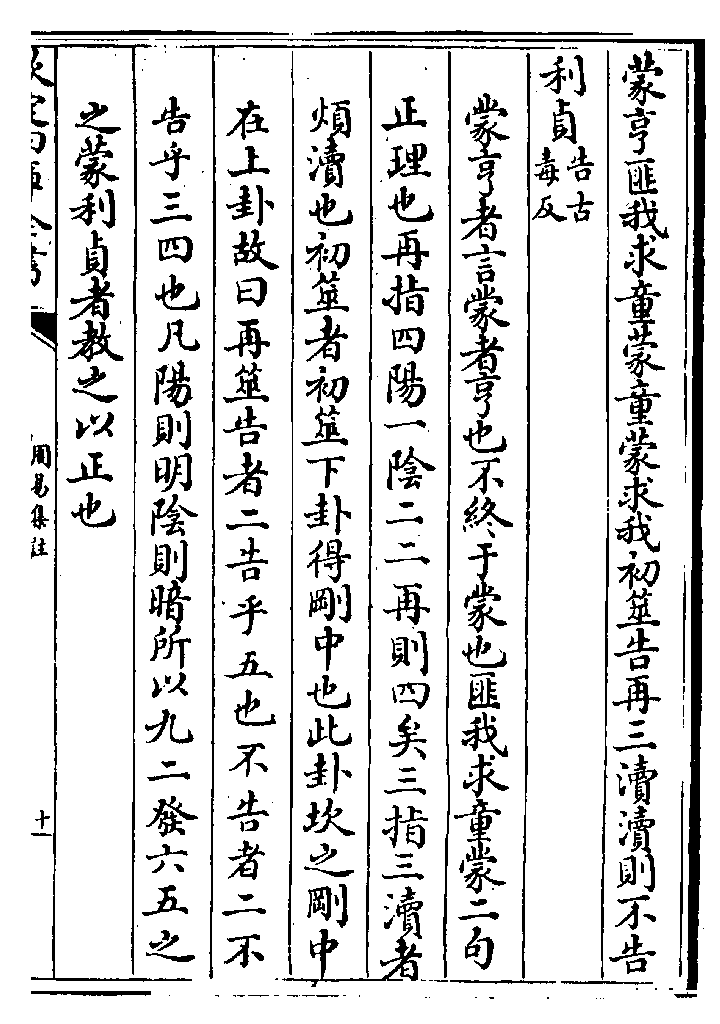 蒙亨匪我求童蒙童蒙求我初筮告再三瀆瀆則不告
利貞告古毒反
蒙亨者言蒙者亨也不終于蒙也匪我求童蒙二句
正理也再指四陽一陰二二再則四矣三指三瀆者
煩瀆也初筮者初筮下卦得剛中也此卦坎之剛中
在上卦故曰再筮告者二告乎五也不告者二不
告乎三四也凡陽則明陰則暗所以九二發六五之
之蒙利貞者教之以正也
周易集註
十一